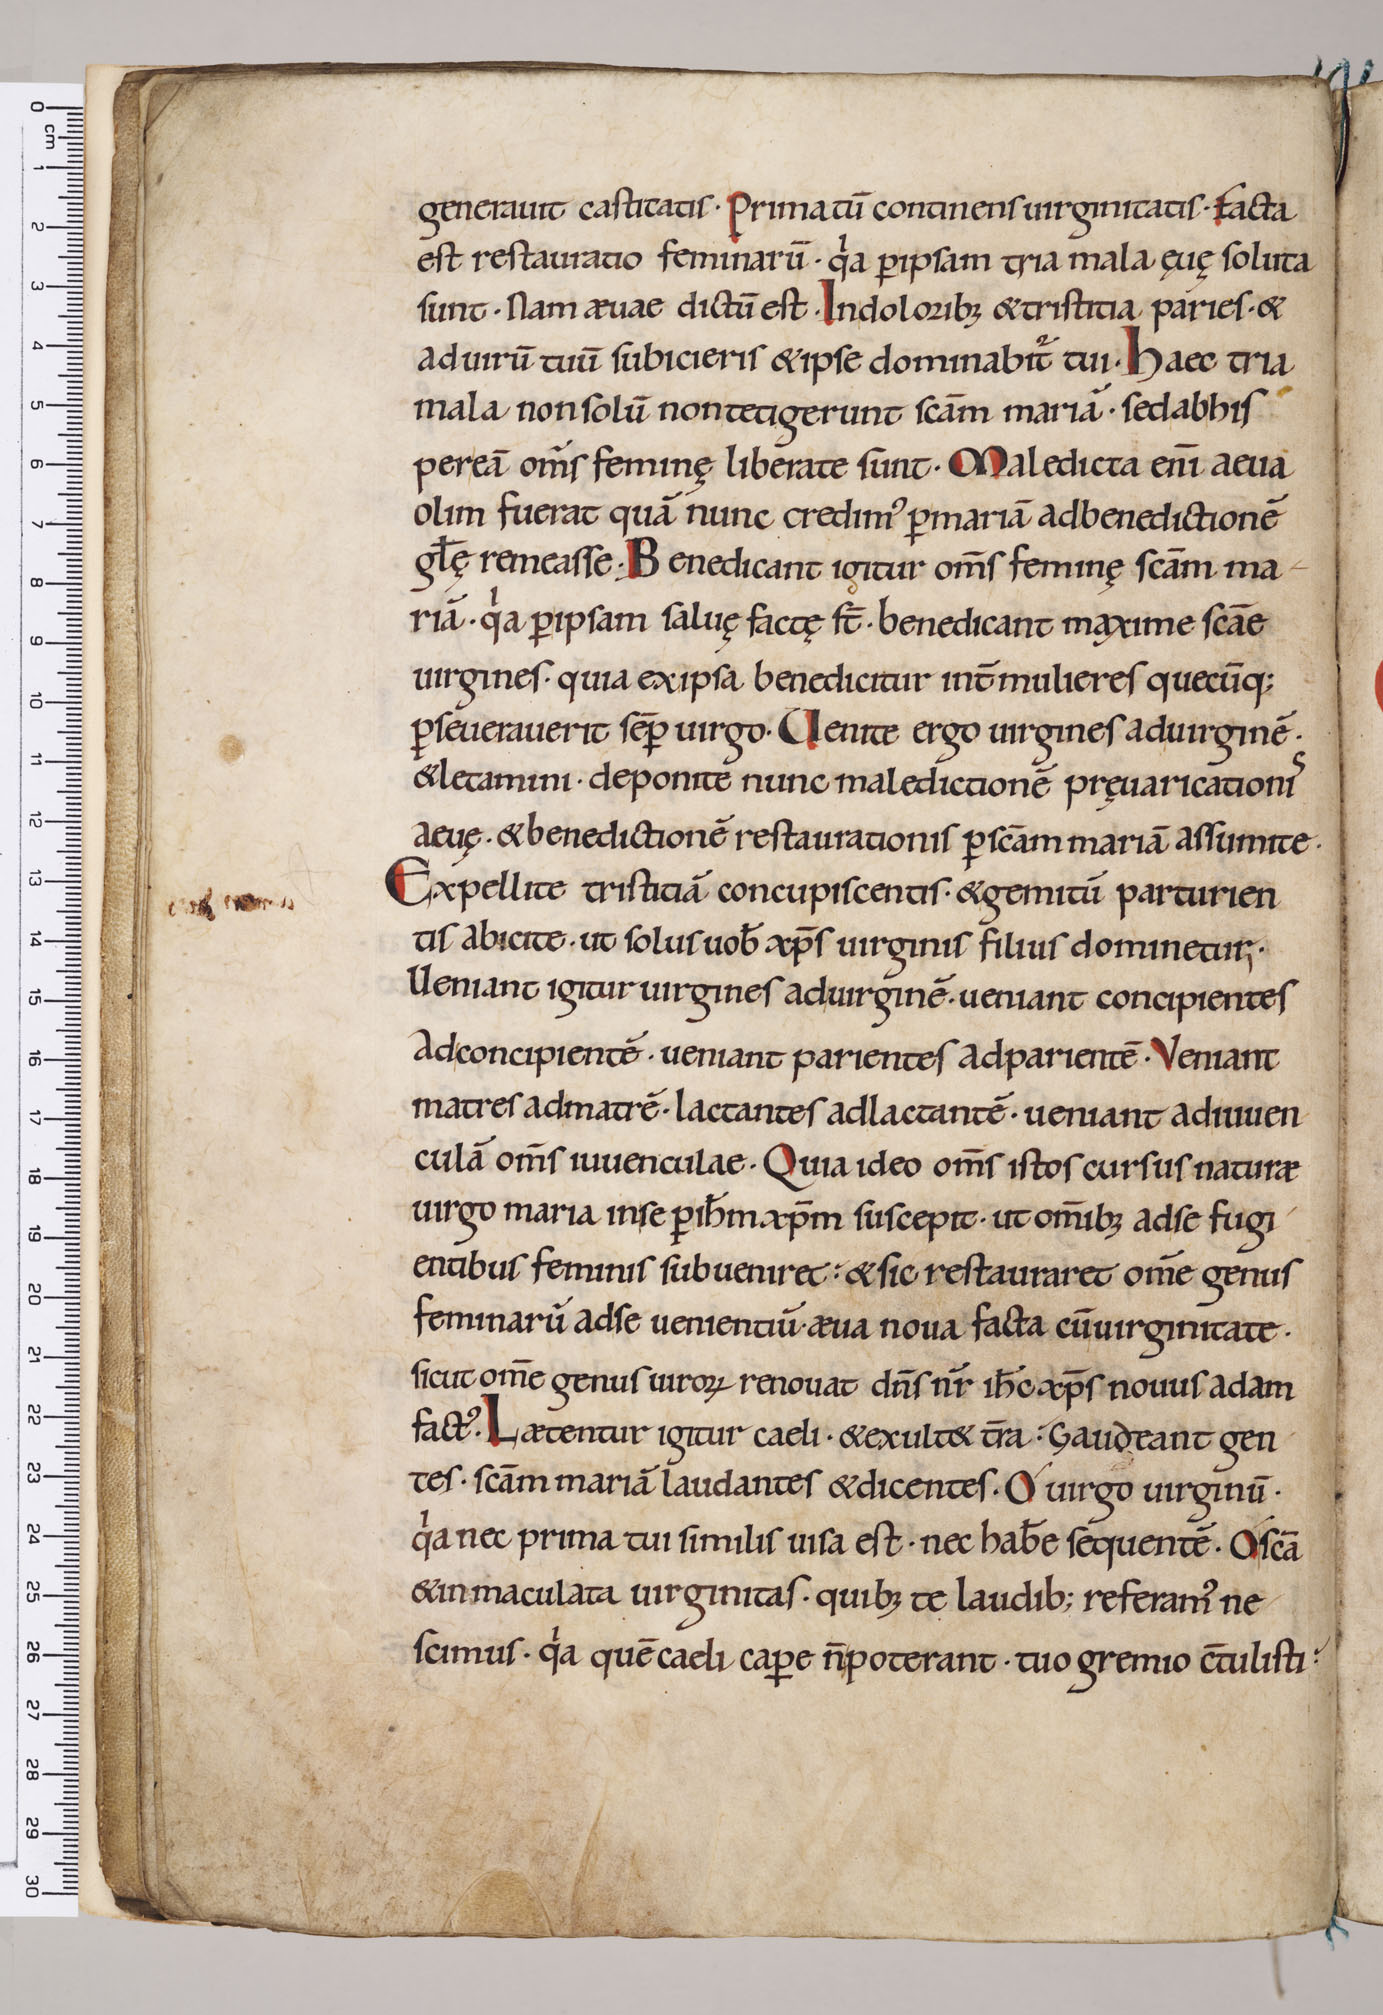 generauit castitatis · Primatū continens uirginitatis · facta
est restauratio feminarū · qͥa ꝑipsam tria mala ęuę soluta
sunt · Nam æuae dictū est · Indoloribꝫ &tristitia paries · &
aduirū tuū subicieris &ipse dominabit᷑ tui · haec tria
mala nonsolū nontetigerunt scām mariā · sedabhis
pereā om̄s feminę liberate sunt · Maledicta eni̅ aeua
olim fuerat quā nunc credimꝰ ꝑmariā adbenedictionē
gl̅ę remeasse · Benedicant igitur om̄s feminę scām ma-
riā · qͥa ꝑipsam saluę factę st̅ · benedicant maxime scāe
uirgines · quia exipsa benedicitur int̅ mulieres quecūq;
ꝑseuerauerit sēꝑ uirgo · Uenite ergo uirgines aduirginē ·
&letamini · deponite nunc maledictionē pręuaricationis
aeuę · &benedictionē restaurationis ꝑscām mariā assumite ·
Expellite tristitiā concupiscentis · &gemitū parturien
tis abicite · ut solus uob̅ xp̅s uirginis filius dominetur ·
Ueniant igitur uirgines aduirginē · ueniant concipientes
adconcipientē · ueniant parientes adparientē · Veniant
matres admatrē · lactantes adlactantē · ueniant adiuuen
culā om̄s iuuenculae · Quia ideo om̄s istos cursus naturæ
uirgo maria inse ꝑih̅m xp̅m suscepit · ut om̄ibꝫ adse fugi
entibus feminis subueniret · &sic restauraret om̄e genus
feminarū adse uenientiū · æua noua facta cūuirginitate ·
sicut om̄e genus uiroꝝ renouat dn̅s nr̅ ih̅c xp̅s nouus adam
factꝰ · Lætentur igitur caeli · &exult& tr̅a · Gaudeant gen
tes · scām mariā laudantes &dicentes · O uirgo uirginū ·
qͥa nec prima tui similis uisa est · nec hab̅e sequentē · O scā
&inmaculata uirginitas · quibꝫ te laudib; referamꝰ ne
scimus · qͥa quē caeli caꝑe n̅poterant · tuo gremio c̅tulisti ·